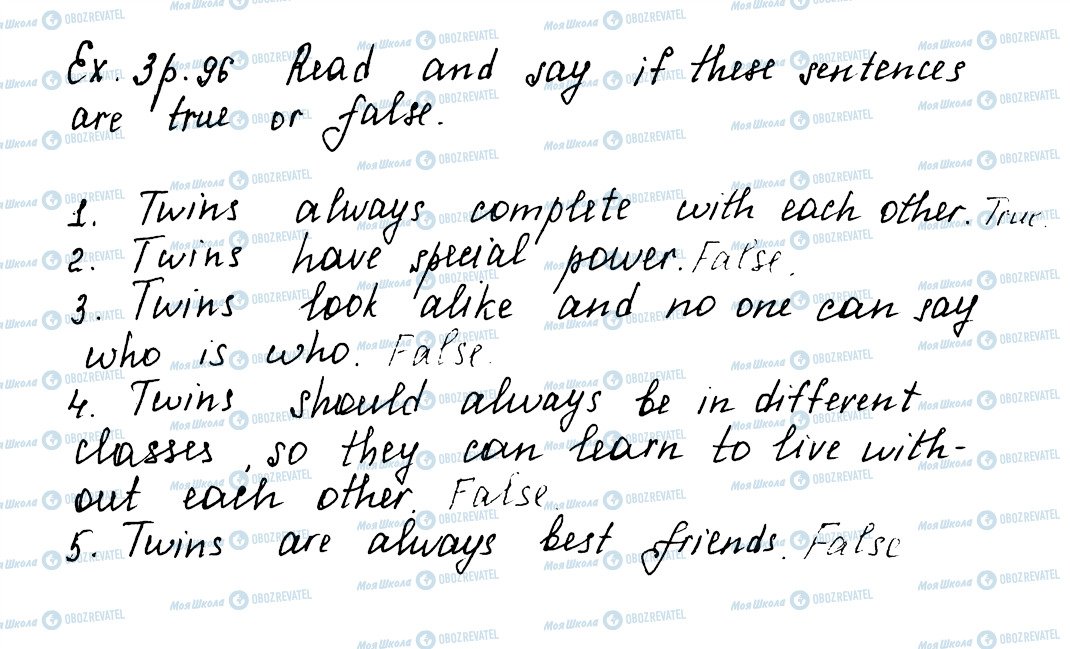 Ex. 3 p. 96 Read and say if these sentences
are true or false.
1. Twins always complete with each other. True.
2. Twins have special power. False.
3. Twins look alike and no one can say
who is who. False.
4. Twins should always be in different
classes, so they can learn to live with-
out each other. False.
5. Twins are always best friends. False
МояШкола OBOZREVATEL